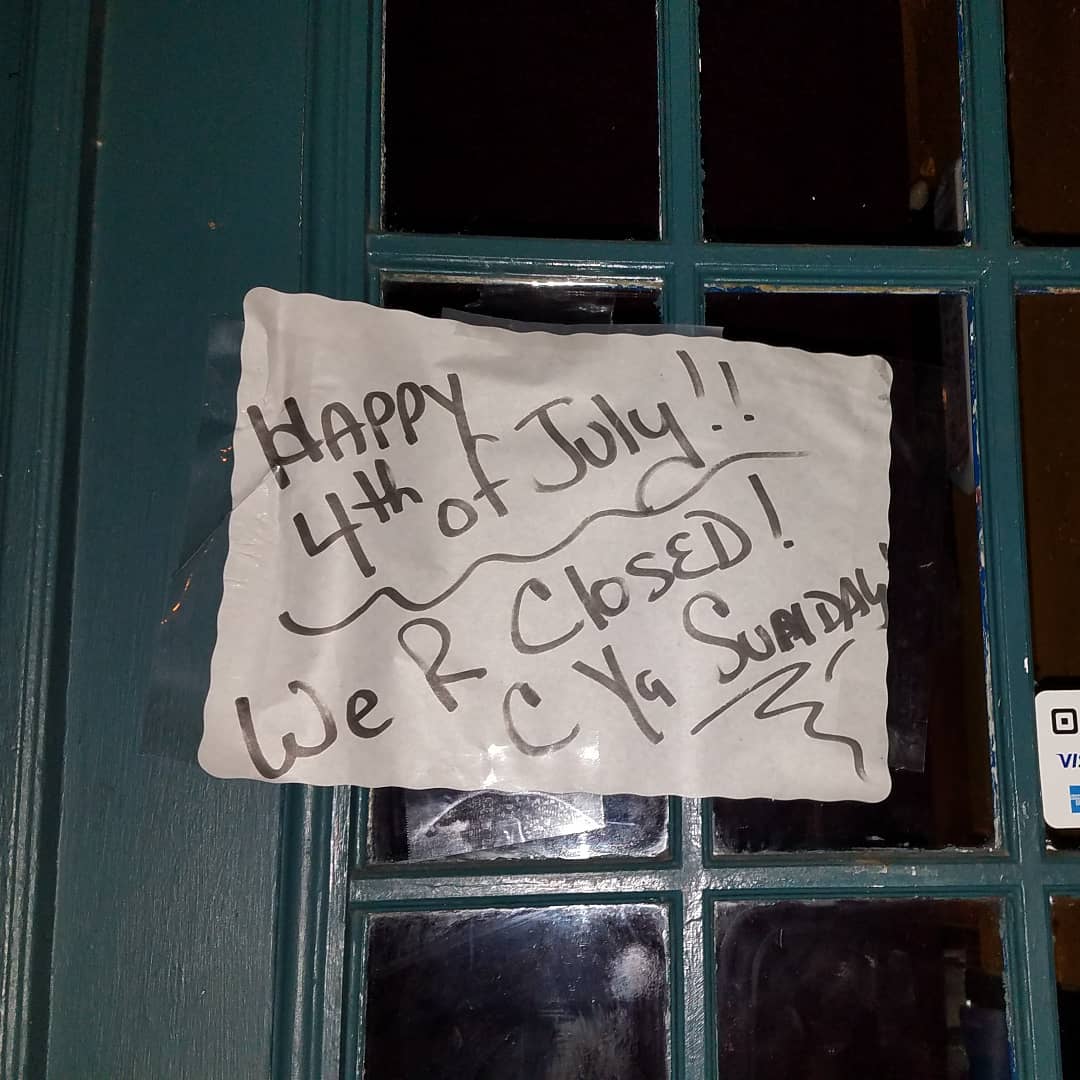 HAPPY
4th of July!!
We R ClosED!
C Ya SUNDAY!
VIS